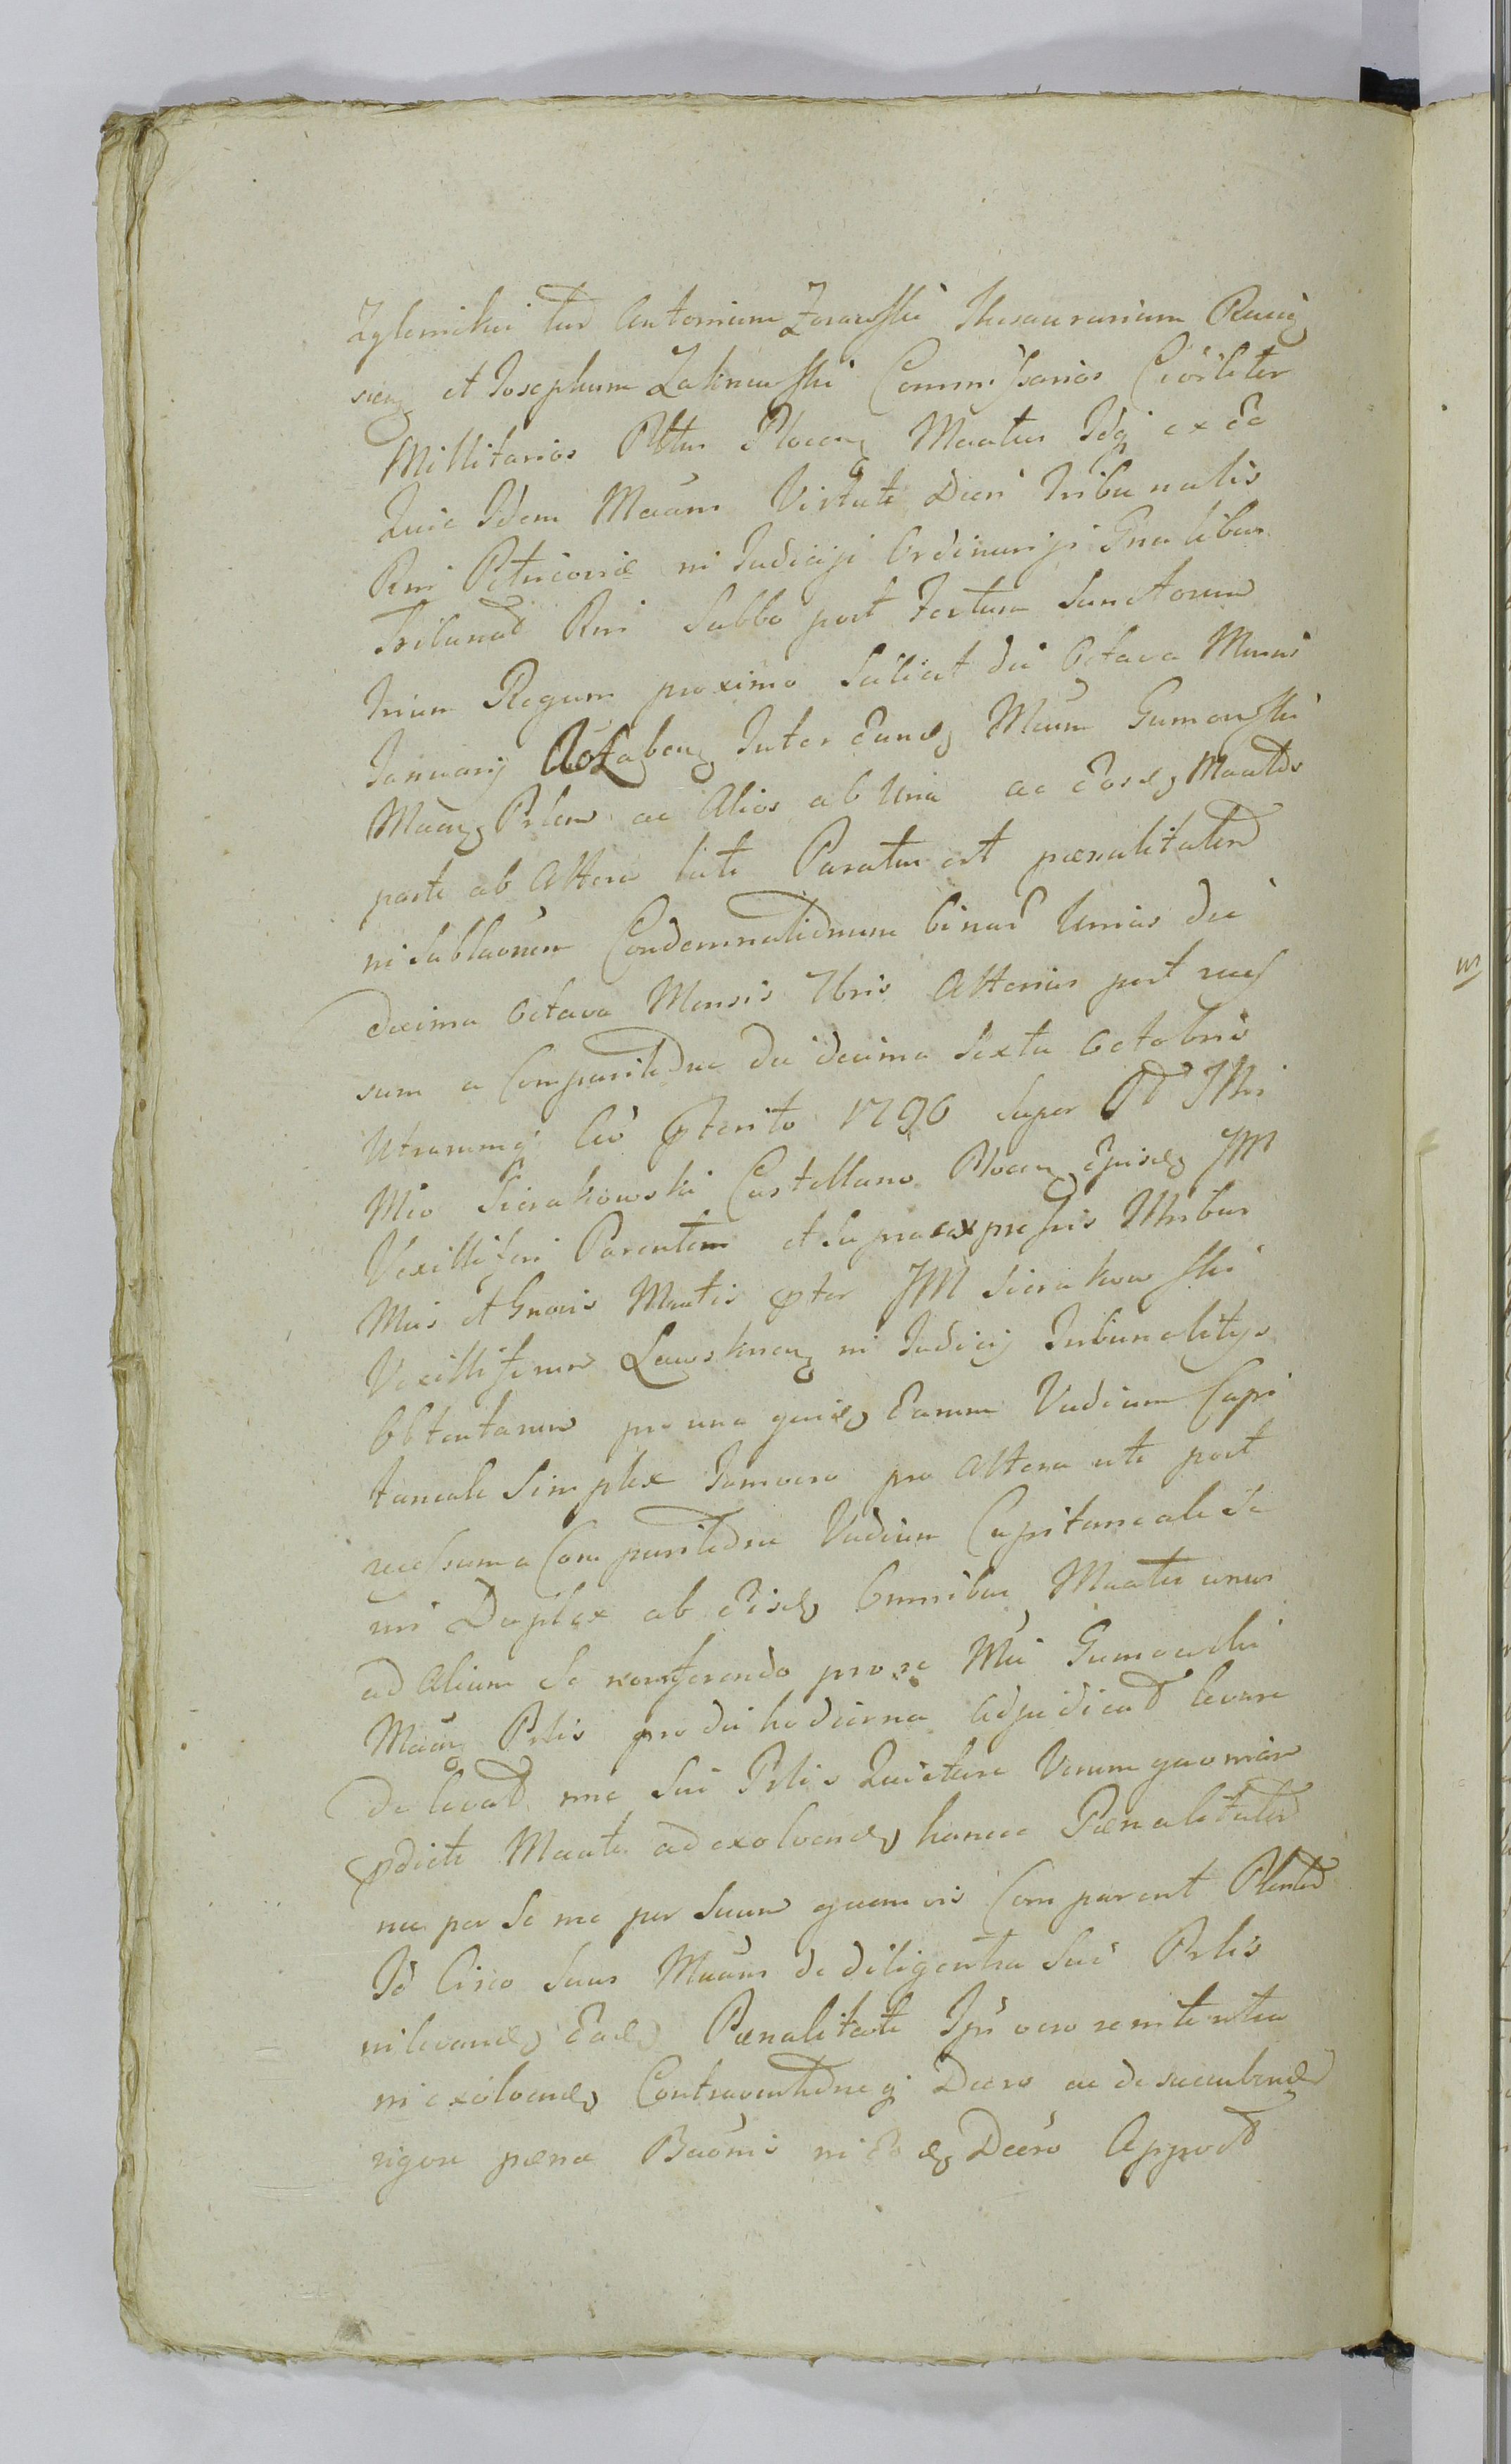 Zglenicki tud Antonium Zorawski Thesaurarium Raciąz
sieng et Josephum Zalinowski Commissarios Civiliter
Millitarios Pltus Plocen Maatus Idq ex Eo
Quia Idem Maaus Virtute Decri Tribunalis
Rni Petricoviæ in Judicijs Ordinarijs Gnalibus
Tribunal Rni Sabbo post Festum Sanctorum
Trium Regum proximo Sciliet die Octava Mensis
January Aō Labeng Inter Eund Mcum Gumowski
Maang Prlem ac Alios ab Una ac Eosd Maatos
parte ab Altera late Paratus est pænalitatem
in Sublaonem Condemnationum binar Unius die
decima Octava Mensis 7bris Alterius post reces
sum a Comparitione die decima Sexta Octobris
Utrarumq Aō pterito 1796 Super Ol IMci
Mco Sierakowski Castellano Plocen Ejusd JM
Vexilliferi Parentem et Supraexpressis IMcibus
Mcis et Gnosis Maatis pter JM Sierakowski
Vexilliferum Lawskren in Judicij Tribunalitijs
Obtentarum pro una quid Earum Vadium Capi
taneale Simplex Jamvero pro Altera uti post
recessum a Comparitione Vadium Capitaneale Si
mi Duplex ab Eisd Omnibus Maatis unus
ad Alium Se referendo pro re Mci Gumowski
Maang Prlis pro die hodierna Adjudicat levare
De levat me Sui Prlis Quietare Verum quoniam
pdicti Maati ad exolvend hancce Pænalitatem
nec per Se nec per Suum quemvis Comparent Plenit
Id Circo Suus Maaus de diligentia Sui Prlis
in levand Ead Pænalitate Ipsi vero renitentia
in exolvend Contraventioneq Decro ac de succubend
rigore pænæ Baonis in Eo d Decro Approb